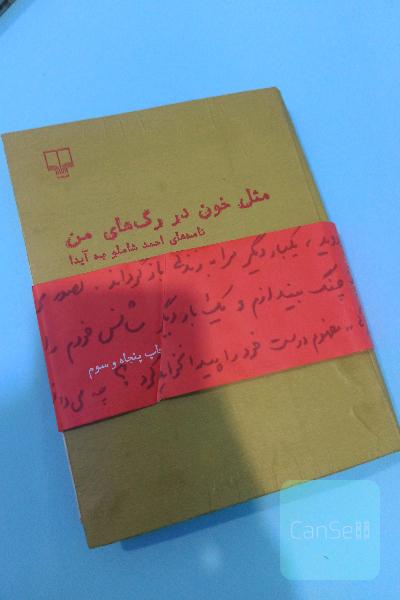 مثل خون در رگ‌های من
نامه‌های احمد شاملو به آیدا
یکبار دیگر مرا به زندگی بازگرداند. تصور
چنگ بیندازم و یک بار دیگر شانس خودم را
مفهوم درست خود را پیدا خواهد کرد؟ چه می‌دا
چاپ پنجاه و سوم
CanSell